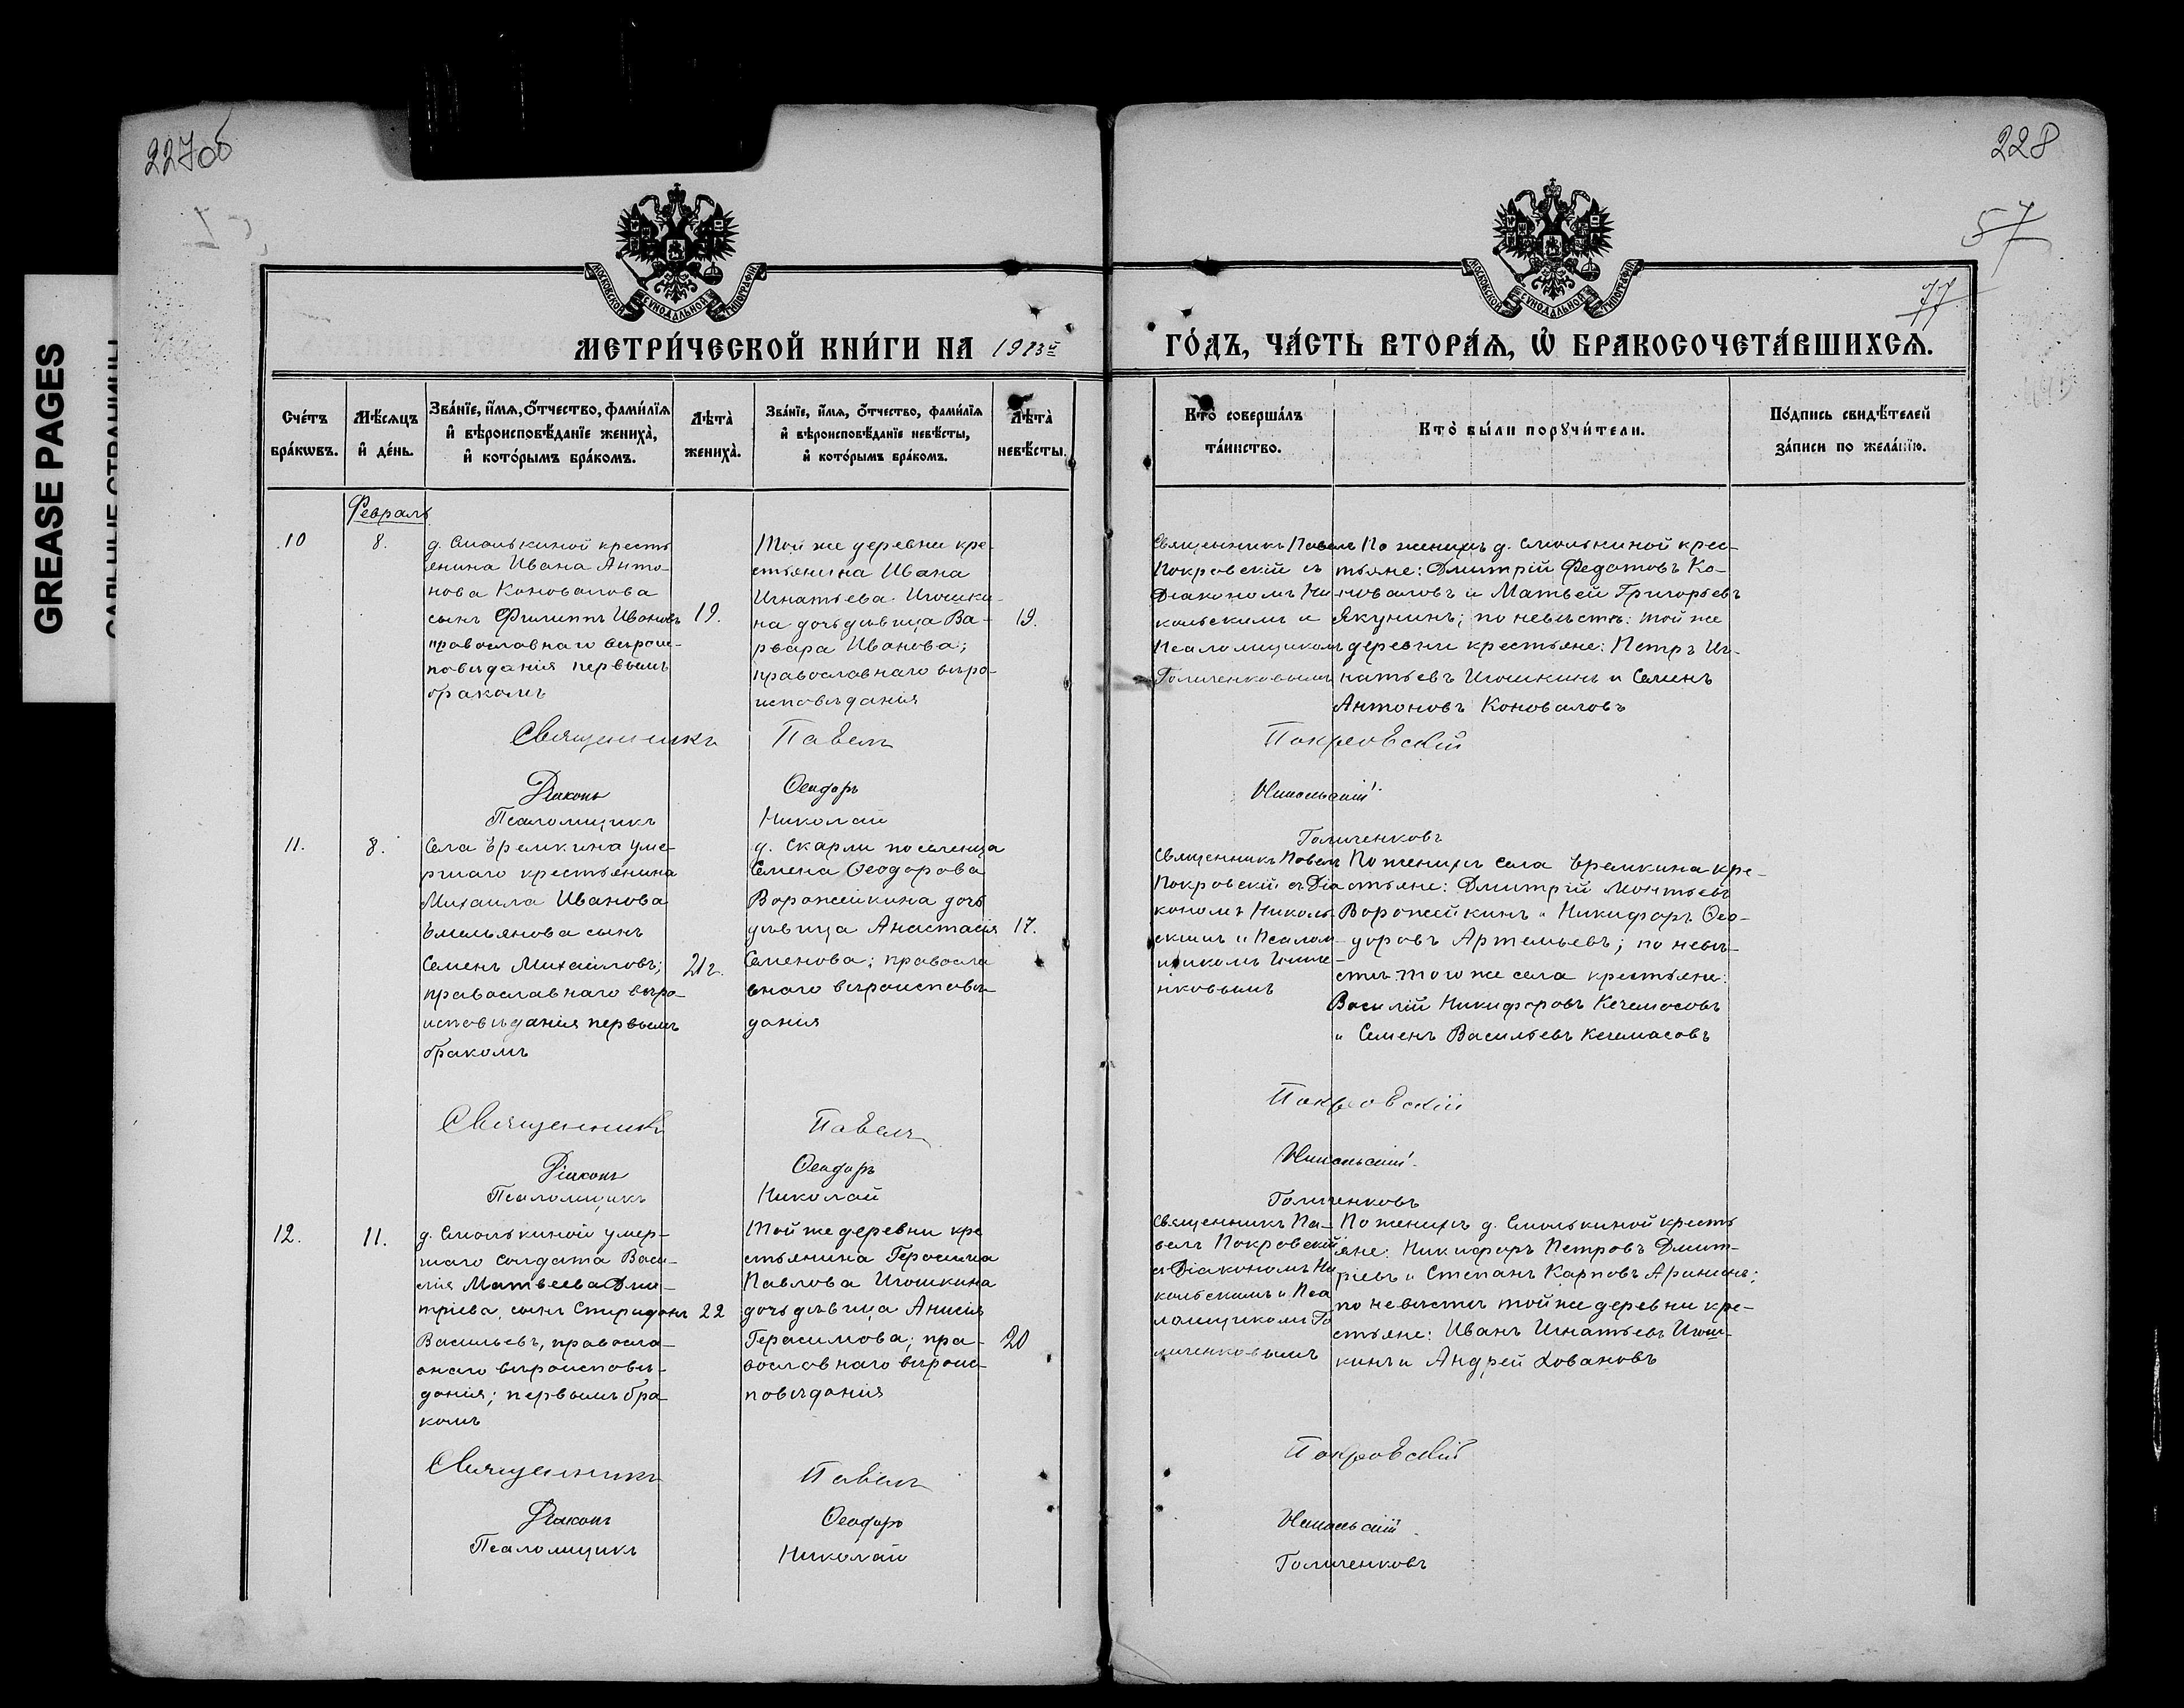 GREASE PAGES
227об
228
57
77
МОСКОВСКОЙ СѴНОДАЛЬНОЙ ТИПОГРАФІИ
МОСКОВСКОЙ СѴНОДАЛЬНОЙ ТИПОГРАФІИ
МЕТРИ́ЧЕСКОЙ КНИ́ГИ НА 1913й
ГО́ДЪ, ЧА́СТЬ ВТОРА́Ѧ, Ѡ҆ БРАКОСОЧЕТА́ВШИХСѦ.
Сче́тъ бра́кѡвъ.
Мѣ́сѧцъ и҆ де́нь.
Зва́нїе, и҆́мѧ, ѻ҆́тчество, фами́лїѧ и҆ вѣроисповѣ́данїе жениха̀, и҆ кото́рымъ бра́комъ.
Лѣта̀ жениха̀.
Зва́нїе, и҆́мѧ, ѻ҆́тчество, фами́лїѧ и҆ вѣроисповѣ́данїе невѣ́сты, и҆ кото́рымъ бра́комъ.
Лѣта̀ невѣ́сты.
Кто̀ соверша́лъ та́инство.
Кто̀ бы́ли порꙋчи́тели.
По́дпись свидѣ́телей за́писи по жела́нїю.
Февраль
10
8.
д. Смолькиной кресть
янина Ивана Анто-
нова Коновалова
сынъ Филиппъ Ивановъ
православнаго вѣроис-
повѣданія первымъ
бракомъ
19.
Той же деревни кре-
стьянина Ивана
Игнатьева Игошки-
на дочь дѣвица Ва-
рвара Иванова;
православнаго вѣро-
исповѣданія
19.
Священникъ Павелъ
Покровскій съ
Діакономъ Ни-
кольскимъ и
Псаломщикомъ
Голиченковымъ
По женихѣ д. Смолькиной крес-
тьяне: Дмитрій Федотовъ Ко-
новаловъ и Матвей Григорьевъ
Якунинъ; по невѣстѣ: той же
деревни крестьяне: Петръ Иг-
натьевъ Игошкинъ и Семенъ
Антоновъ Коноваловъ
Священникъ Павелъ Покровскій
Діаконъ Ѳеодоръ Никольскій
Псаломщикъ Николай Голиченковъ
11.
8.
Села Еремкина уме-
ршаго крестьянина
Михаила Иванова
Емельянова сынъ
Семенъ Михайловъ;
православнаго вѣро-
исповѣданія первымъ
бракомъ
21 г.
д. Скарли поселенца
Семена Ѳеодорова
Ворожейкина дочь
дѣвица Анастасія
Семенова; правосла
внаго вѣроисповѣ-
данія
17.
Священникъ Павелъ
Покровскій съ Діа
кономъ Николь-
скимъ и Псалом-
щикомъ Голиче-
нковымъ
По женихѣ села Еремкина кре-
стьяне: Дмитрій Монтьевъ
Ворожейкинъ и Никифоръ Ѳео-
доровъ Артемьевъ; по невѣ-
стѣ того же села крестьяне:
Василій Никифоровъ Кечемасовъ
и Семенъ Васильевъ Кечемасовъ
Священникъ Павелъ Покровскій
Діаконъ Ѳеодоръ Никольскій
Псаломщикъ Николай Голиченковъ
12.
11.
д. Смолькиной умер-
шаго солдата Васи-
лія Матвеева Дми-
тріева, сынъ Спиридонъ
Васильевъ, правосла-
внаго вѣроисповѣ-
данія; первымъ бра-
комъ
22
Той же деревни кре
стьянина Герасима
Павлова Игошкина
дочь дѣвица Анисія
Герасимова; пра-
вославнаго вѣроис-
повѣданія
20
Священникъ Па-
велъ Покровскій
съ Діакономъ Ни
кольскимъ и Пса
ломщикомъ Го
личенковымъ
По женихѣ д. Смолькиной кресть
яне: Никифоръ Петровъ Дмит-
ріевъ и Степанъ Карповъ Аринин;
по невѣстѣ той же деревни кре-
стьяне: Иванъ Игнатьевъ Игош-
кинъ и Андрей Ловановъ
Священникъ Павелъ Покровскій
Діаконъ Ѳеодоръ Никольскій
Псаломщикъ Николай Голиченковъ